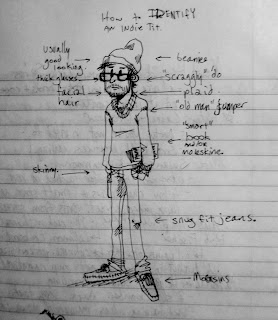 How to IDENTIFY
AN INDIE TIT.
usually
good
looking.
thick glasses
facial
hair
skinny.
beanie
"scraggly" 'do
plaid
"old man" jumper
"smart"
book
and/or
moleskine.
snug fit jeans.
Mocasins